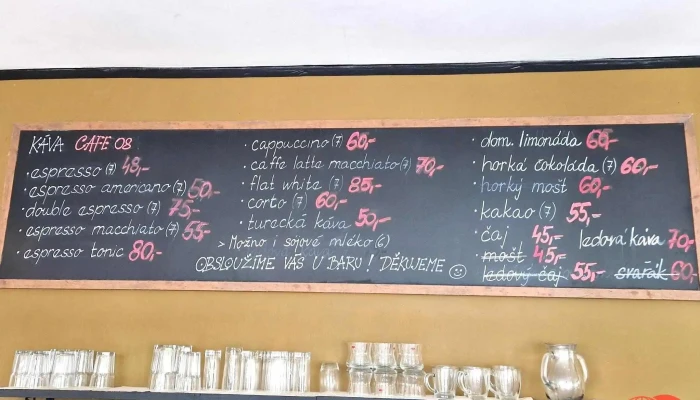 KÁVA CAFE 08
espresso (7) 48,-
espresso americano (7) 50,-
double espresso (7) 75,-
espresso macchiato (7) 55,-
espresso tonic 80,-
cappuccino (7) 60,-
caffe latte macchiato (7) 70,-
flat white (7) 85,-
corto (7) 60,-
turecká káva 50,-
> Možno i sojové mléko (6)
OBSLOUŽÍME VÁS U BARU! DĚKUJEME ☺
dom. limonáda 60,-
horká čokoláda (7) 60,-
horký mošt 60,-
kakao (7) 55,-
čaj 45,- ledová káva 70,-
mošt 45,-
ledový čaj 55,- svařák 60,-